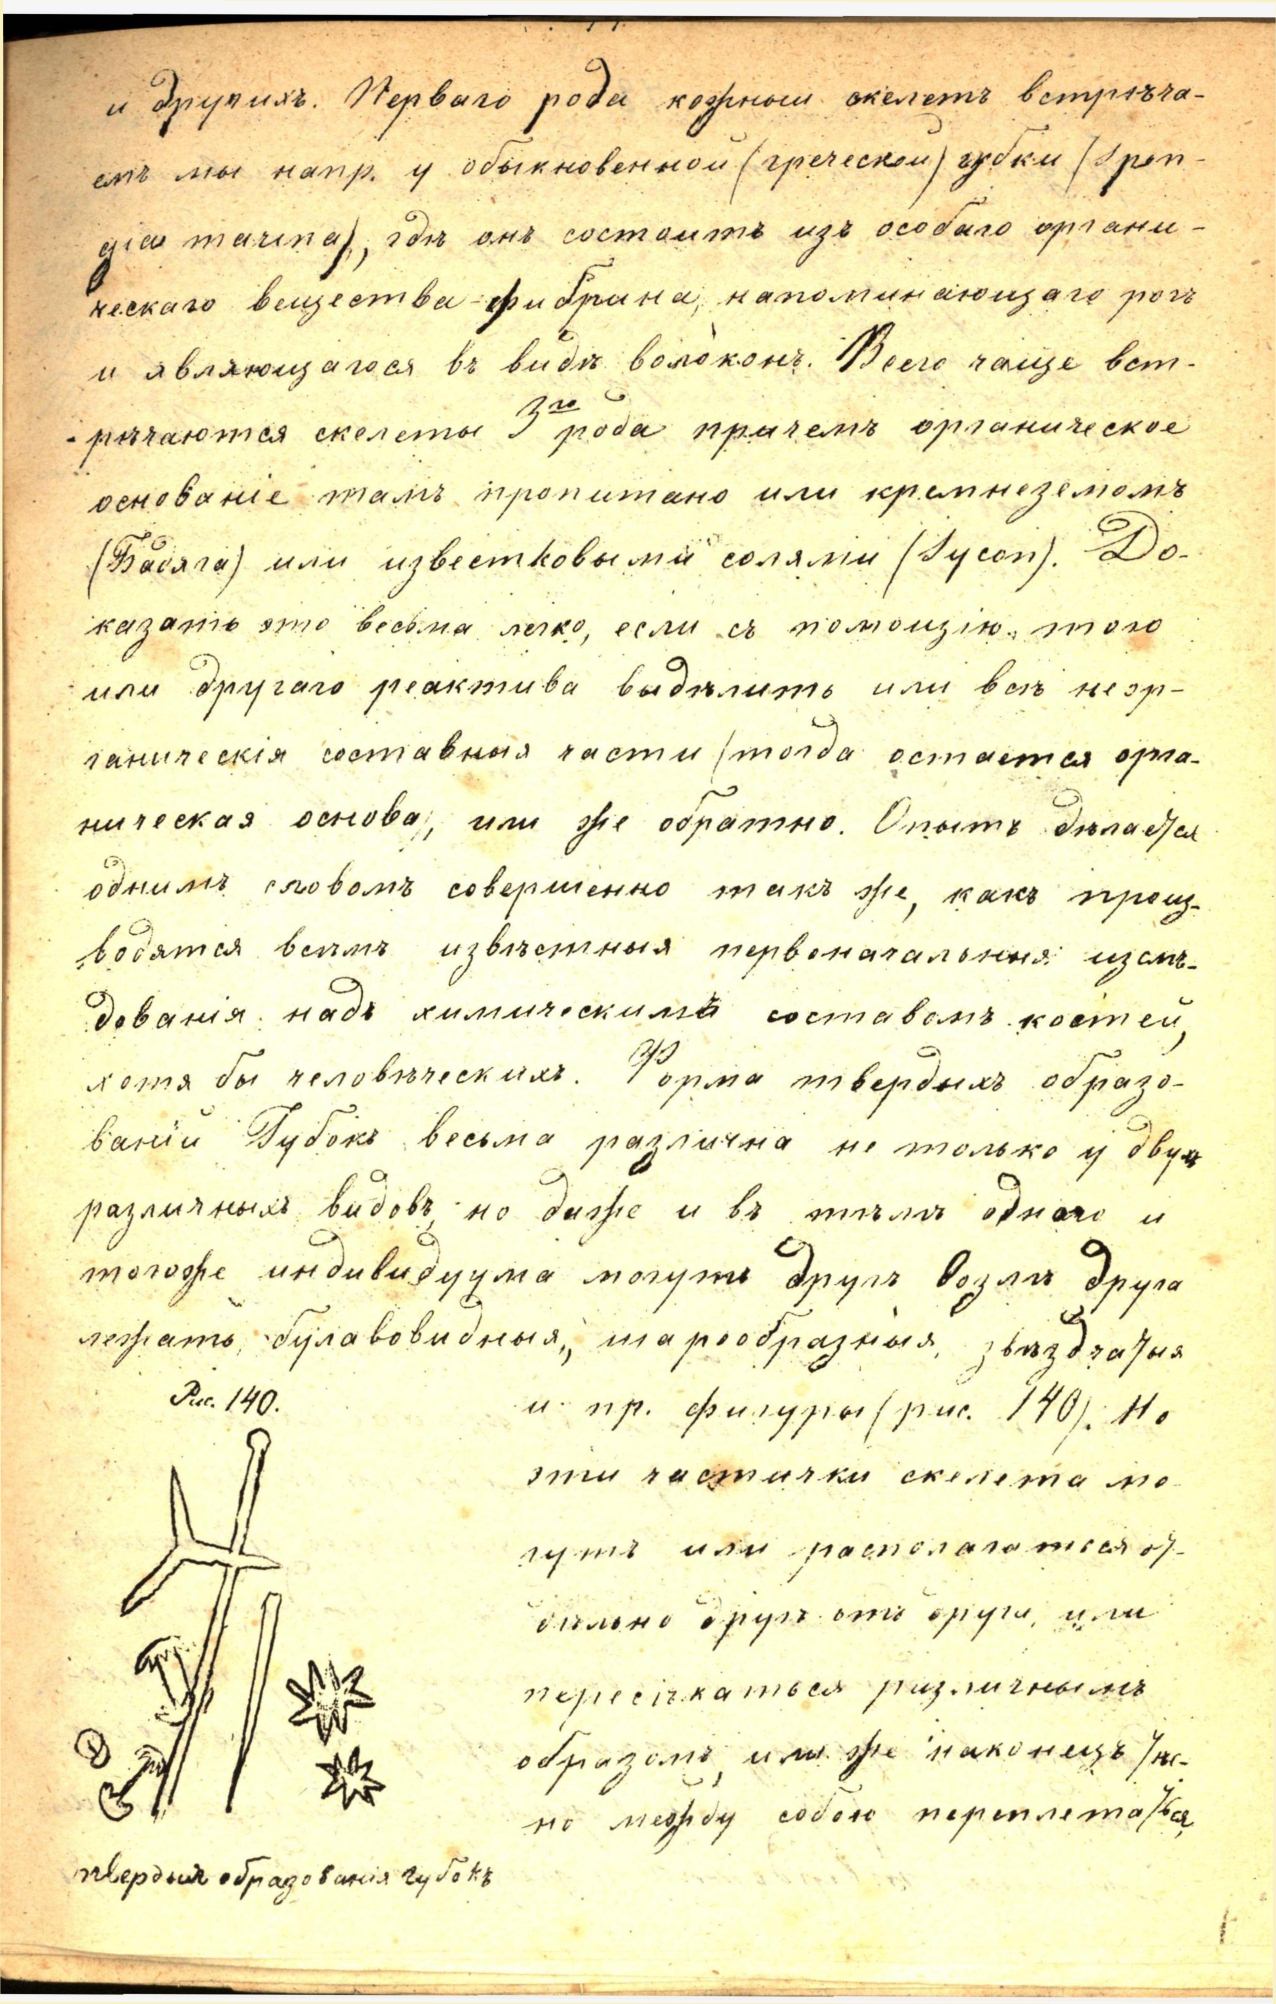 и другихъ. Перваго рода кожный скелетъ встрѣча-
емъ мы напр. у обыкновенной (греческой) губки (Spon-
gia marina), гдѣ онъ состоитъ изъ особаго органи-
ческаго вещества фибрина, напоминающаго рогъ
и являющагося въ видѣ волоконъ. Всего чаще вст-
рѣчаются скелеты 3го рода причемъ органическое
основаніе тамъ пропитано или кремнеземомъ
(Бадяга) или известковыми солями (Sycon). До-
казать это весьма легко, если съ помощію того
или другаго реактива выдѣлить или всѣ неор-
ганическія составныя части (тогда остается орга-
ническая основа), или же обратно. Опытъ дѣлается
однимъ словомъ совершенно такъ же, какъ произ-
водятся всѣмъ извѣстныя первоначальныя изслѣ-
дованія надъ химическимъ составомъ костей,
хотя бы человѣческихъ. Форма твердыхъ образо-
ваній Губокъ весьма различна не только у двухъ
различныхъ видовъ, но даже и въ тѣлѣ одного и
тогоже индивидуума могутъ другъ возлѣ друга
лежать булавовидныя, шарообразныя, звѣздчатыя
Рис. 140.
и пр. фигуры (рис. 140). Но
эти частички скелета мо-
гутъ или располагаться от-
дѣльно другъ отъ друга, или
пересѣкаться различнымъ
образомъ, или же наконецъ тѣс-
но между собою переплетаться,
твердыя образованія губокъ